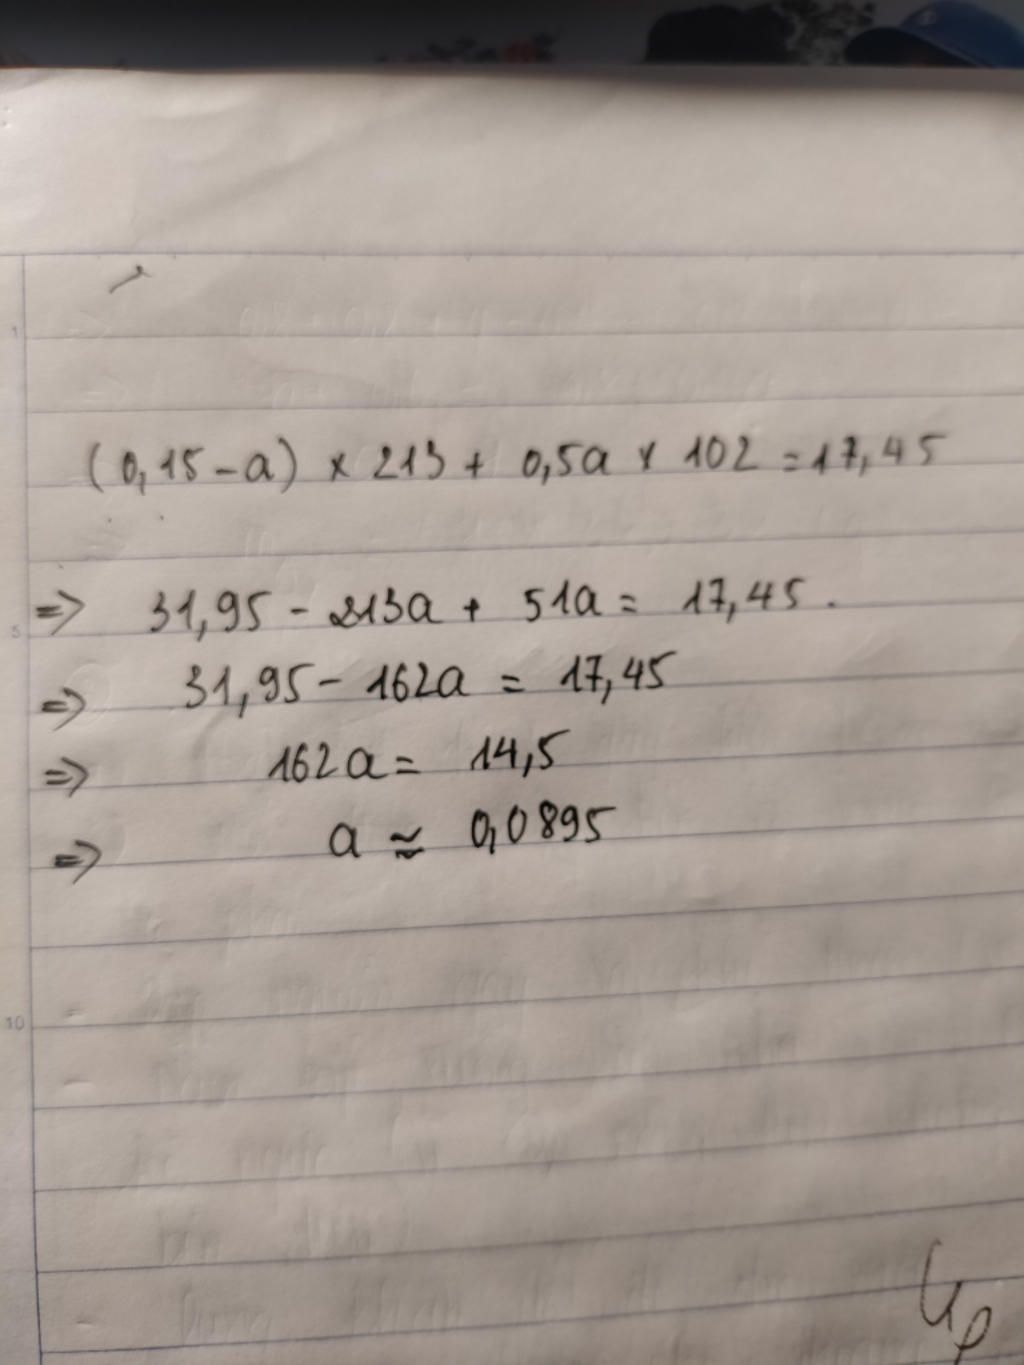 1
(0,15-a) × 213 + 0,5a × 102 = 17,45
=> 31,95 - 213a + 51a = 17,45.
5
=> 31,95 - 162a = 17,45
=> 162a = 14,5
=> a ≈ 0,0895
10